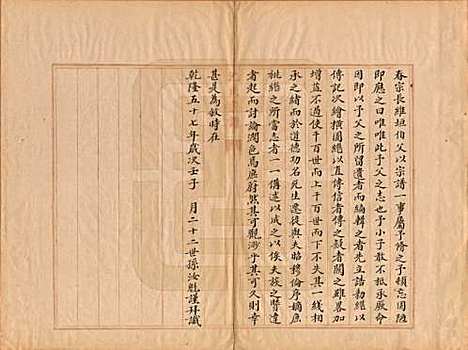 春宗長維垣伯父以宗譜一事屬予修之予頓忘固陋
即應之曰唯唯此予父之志也予小子敢不祗承厥命
因即以予父之所留遺者而編輯之者先立誥勅繼以
傳記次繪橫圖繼以直傳信者傳之疑者闕之雖畧加
增益不過使千百世而上千百世而下不失其一線相
承之緒而於道德功名死生遷徙與夫昭穆倫序嫡庶
祧繼之所當志者一一備述以成之以俟夫族之賢達
者起而討論潤色焉庶蔚然其可觀渺乎其可久則幸
甚是為敘時在
乾隆五十七年歲次壬子 月二十二世孫汝魁謹拜識